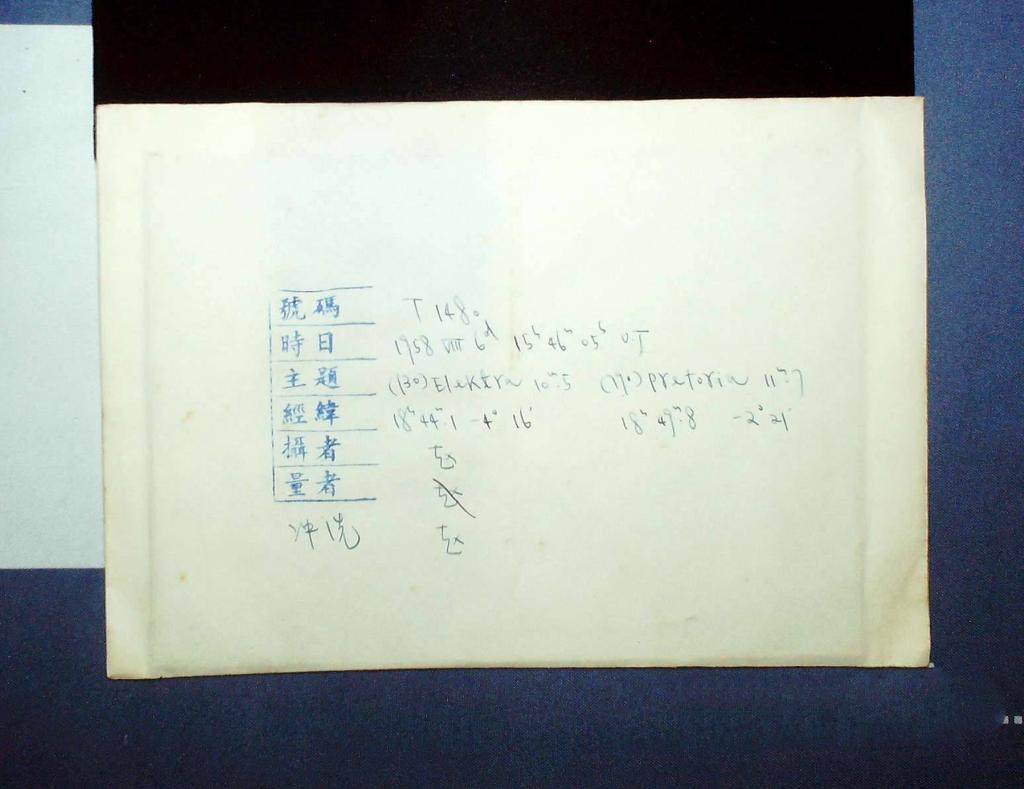 號碼 T 1480
時日 1958 VIII 6ᵈ 15ʰ 46ᵐ 05ˢ U.T
主題 (130) Elektra 10ᵐ.5 (790) Pretoria 11ᵐ.7
經緯 18ʰ 44ᵐ.1 -4° 16' 18ʰ 49ᵐ.8 -2° 21'
攝者
量者
冲洗